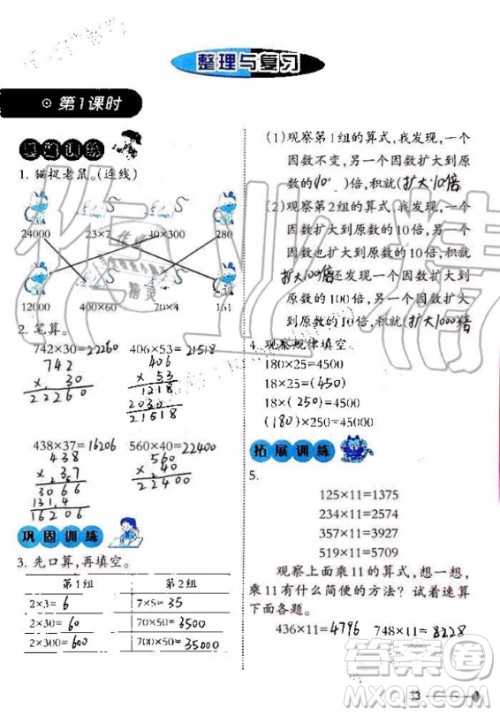 整理与复习
第1课时
基础训练
1. 猫捉老鼠。(连线)
24000 23×7 40×300 280
12000 400×60 70×4 161
2. 笔算。
742×30=22260 406×53=21518
742
× 30
22260
406
× 53
1218
2030
21518
438×37=16206 560×40=22400
438
× 37
3066
1314
16206
560
× 40
22400
巩固训练
3. 先口算，再填空。
第1组 第2组
2×3=6 7×5=35
2×30=60 70×50=3500
2×300=600 700×50=35000
(1)观察第1组的算式，我发现，一个
因数不变，另一个因数扩大到原
数的(10)倍，积就(扩大10倍
(2)观察第2组的算式，我发现，一个
因数扩大到原数的10倍，另一个
因数也扩大到原数的10倍，积就
扩大100倍还发现，一个因数扩大到
原数的100倍，另一个因数扩大到
原数的10倍，积就(扩大1000倍
4. 观察规律填空。
180×25=(4500)
18×25=(450)
18×(250)=4500
(180)×250=45000
拓展训练
5.
125×11=1375
234×11=2574
357×11=3927
519×11=5709
观察上面乘11的算式，想一想，
乘11有什么简便的方法？试着速算
下面各题。
436×11=4796 748×11=8228
13
答案圈
MXQE.COM
作业精灵